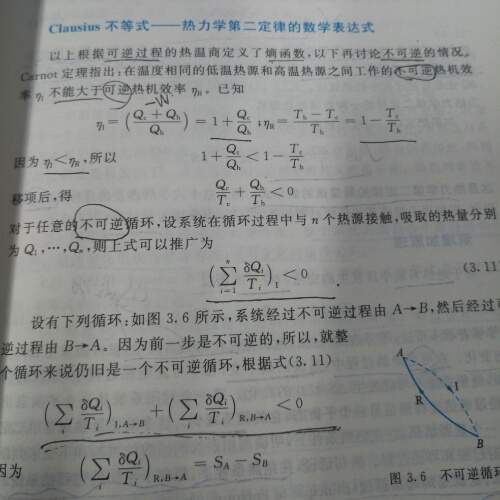 Clausius 不等式——热力学第二定律的数学表达式
以上根据可逆过程的热温商定义了熵函数,以下再讨论不可逆的情况。
Carnot 定理指出:在温度相同的低温热源和高温热源之间工作的不可逆热机效
率 ηI 不能大于可逆热机效率 ηR。已知
-W
ηI = (Qc + Qh)/Qh = 1 + Qc/Qh ; ηR = (Th − Tc)/Th = 1 − Tc/Th
因为 ηI < ηR,所以 1 + Qc/Qh < 1 − Tc/Th
移项后,得
Qc/Tc + Qh/Th < 0
对于任意的不可逆循环,设系统在循环过程中与 n 个热源接触,吸取的热量分别
为 Q1,…,Qn,则上式可以推广为
(∑_{i=1}^{n} δQi/Ti)_I < 0 (3.11)
设有下列循环:如图 3.6 所示,系统经过不可逆过程由 A→B,然后经过可
逆过程由 B→A。因为前一步是不可逆的,所以,就整
个循环来说仍旧是一个不可逆循环,根据式(3.11)
(∑_i δQi/Ti)_{I,A→B} + (∑_i δQi/Ti)_{R,B→A} < 0
因为 (∑_i δQi/Ti)_{R,B→A} = SA − SB
A
I
R
B
图 3.6 不可逆循环